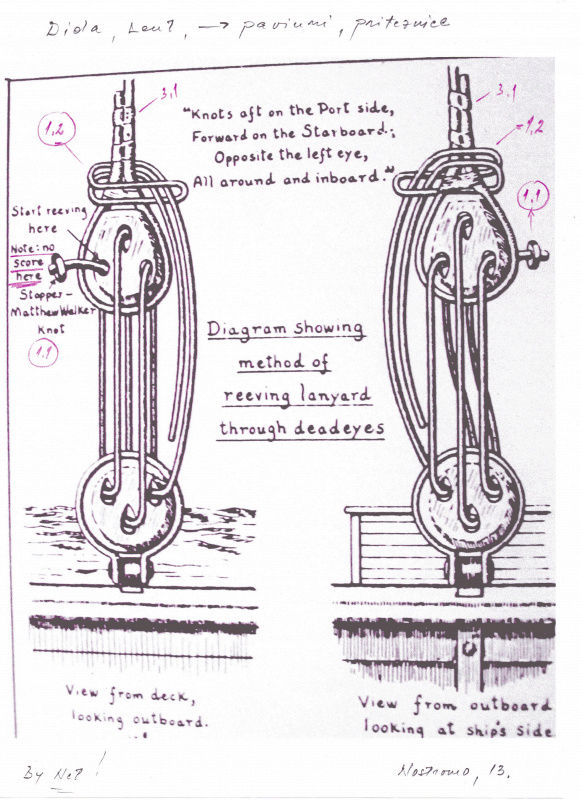 Dida, Leut, → paviumi, priteznice
3,1
3,1
1,2
1,2
"Knots aft on the Port side,
Forward on the Starboard;
Opposite the left eye,
All around and inboard."
1,1
Start reeving
here
Note: no
score
here
Stopper–
Matthew Walker
Knot
1,1
Diagram showing
method of
reeving lanyard
through deadeyes
View from deck,
looking outboard.
View from outboard
looking at ship's side
By Net!
Nostromo, 13.